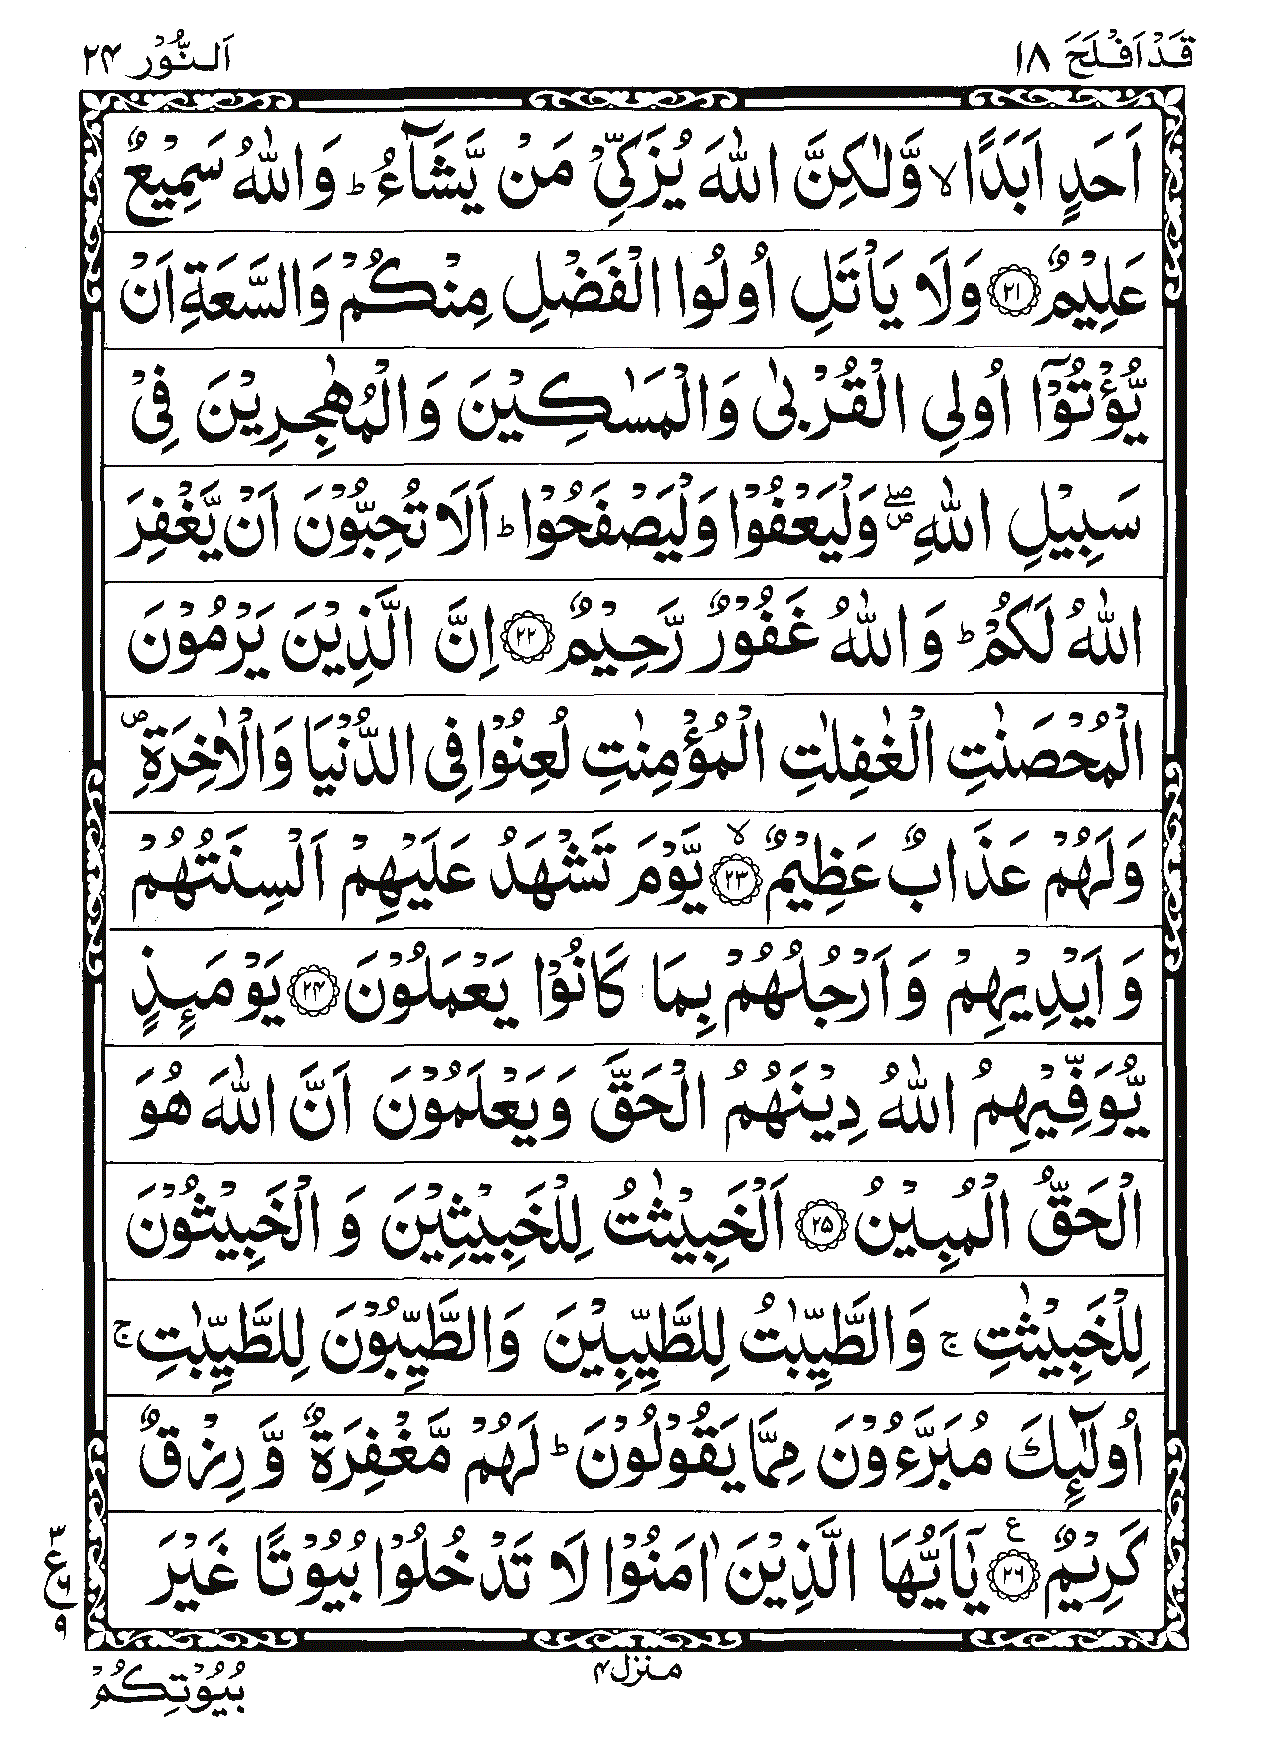 قَدْ اَفْلَحَ ۱۸
اَلنُّوْر ۲۴
اَحَدٍ اَبَدًا ۙ وَّلٰكِنَّ اللّٰهَ يُزَكِّيْ مَنْ يَّشَآءُ ؕ وَاللّٰهُ سَمِيْعٌ
عَلِيْمٌ ۲۱ وَلَا يَاْتَلِ اُولُوا الْفَضْلِ مِنْكُمْ وَالسَّعَةِ اَنْ
يُّؤْتُوْۤا اُولِي الْقُرْبٰى وَالْمَسٰكِيْنَ وَالْمُهٰجِرِيْنَ فِيْ
سَبِيْلِ اللّٰهِ ۖ وَلْيَعْفُوْا وَلْيَصْفَحُوْا ؕ اَلَا تُحِبُّوْنَ اَنْ يَّغْفِرَ
اللّٰهُ لَكُمْ ؕ وَاللّٰهُ غَفُوْرٌ رَّحِيْمٌ ۲۲ اِنَّ الَّذِيْنَ يَرْمُوْنَ
الْمُحْصَنٰتِ الْغٰفِلٰتِ الْمُؤْمِنٰتِ لُعِنُوْا فِي الدُّنْيَا وَالْاٰخِرَةِ ۪
وَلَهُمْ عَذَابٌ عَظِيْمٌ ۲۳ ۙ يَّوْمَ تَشْهَدُ عَلَيْهِمْ اَلْسِنَتُهُمْ
وَ اَيْدِيْهِمْ وَ اَرْجُلُهُمْ بِمَا كَانُوْا يَعْمَلُوْنَ ۲۴ يَوْمَئِذٍ
يُّوَفِّيْهِمُ اللّٰهُ دِيْنَهُمُ الْحَقَّ وَيَعْلَمُوْنَ اَنَّ اللّٰهَ هُوَ
الْحَقُّ الْمُبِيْنُ ۲۵ اَلْخَبِيْثٰتُ لِلْخَبِيْثِيْنَ وَ الْخَبِيْثُوْنَ
لِلْخَبِيْثٰتِ ۚ وَالطَّيِّبٰتُ لِلطَّيِّبِيْنَ وَالطَّيِّبُوْنَ لِلطَّيِّبٰتِ ۚ
اُولٰٓئِكَ مُبَرَّءُوْنَ مِمَّا يَقُوْلُوْنَ ؕ لَهُمْ مَّغْفِرَةٌ وَّ رِزْقٌ
كَرِيْمٌ ۲۶ ع يٰۤاَيُّهَا الَّذِيْنَ اٰمَنُوْا لَا تَدْخُلُوْا بُيُوْتًا غَيْرَ
۳
ع ۶
۹
منزل ۴
بُيُوْتِكُمْ